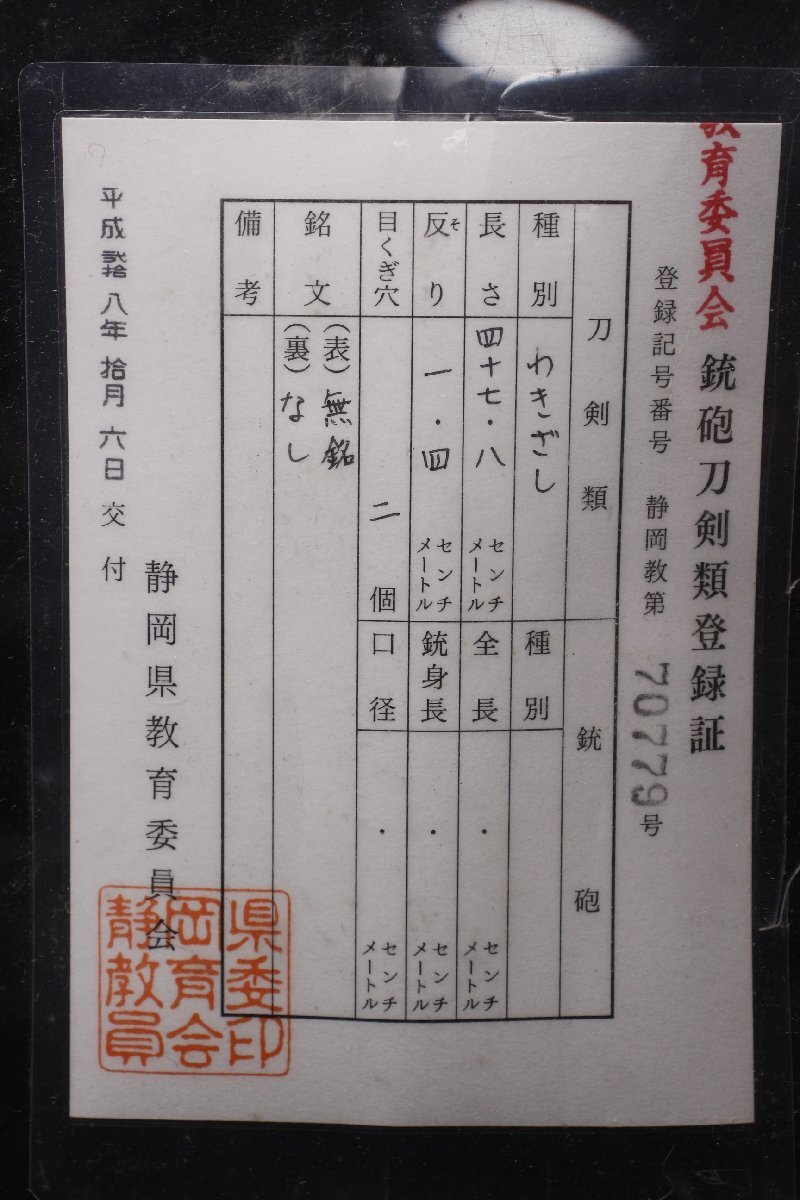 教育委員会
銃砲刀剣類登録証
登録記号番号 静岡教第 70779号
刀剣類
種別 わきざし
長さ 四十七・八 センチメートル
反り 一・四 センチメートル
そ
目くぎ穴 二 個
銘文 (表)無銘
(裏)なし
備考
銃砲
種別
全長 ・ センチメートル
銃身長 ・ センチメートル
口径 ・ センチメートル
平成弐拾八年拾月六日交付
静岡県教育委員会
静岡県
教育委
員会印